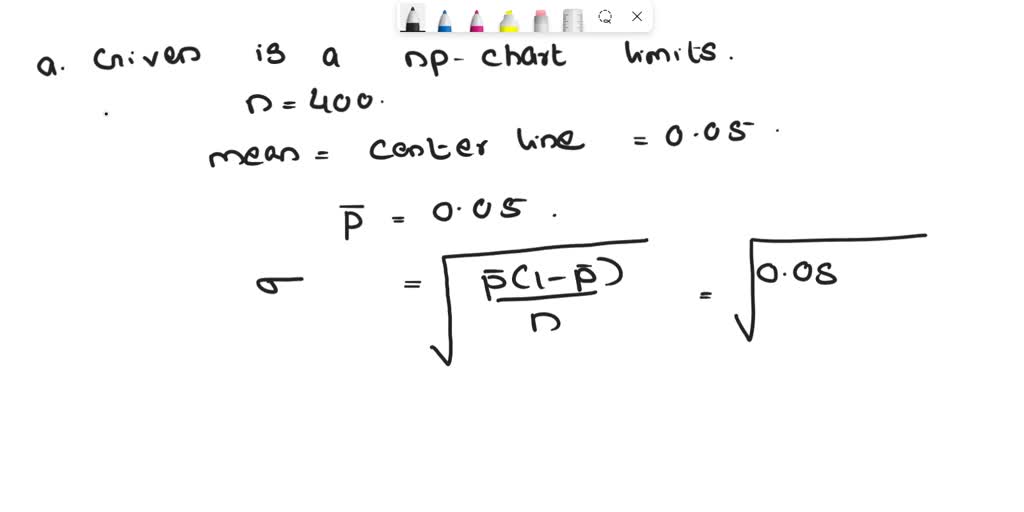 a. Given is a np-chart limits.
n = 400.
mean = center line = 0.05.
p̄ = 0.05.
σ = √(p̄(1-p̄)/n) = √0.05